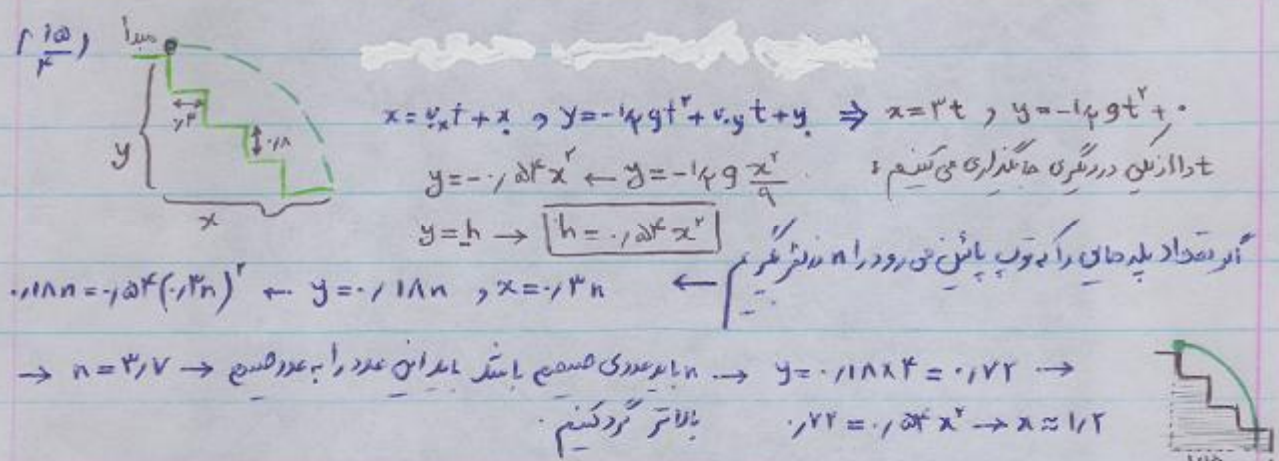 ۱۵/۴) مبدأ
x = v.ₓt + x. و y = -½gt² + v.yt + y. ⇒ x = ۳t و y = -½gt² + ۰
۰٫۳
۰٫۱۸
y
x
t را از یکی در دیگری جاگذاری می کنیم: y = -½g x²/۹ → y = -۰٫۵۴x²
y = -h → h = ۰٫۵۴x²
اگر تعداد پله هایی را که توپ پائین می رود را n در نظر بگیریم
← y = ۰٫۱۸n , x = ۰٫۳n ← ۰٫۱۸n = ۰٫۵۴(۰٫۳n)²
→ n = ۳٫۷ → n باید عددی صحیح باشد باید این عدد را به عدد صحیح بالاتر گرد کنیم. → y = ۰٫۱۸×۴ = ۰٫۷۲ →
۰٫۷۲ = ۰٫۵۴x² → x ≈ ۱٫۲